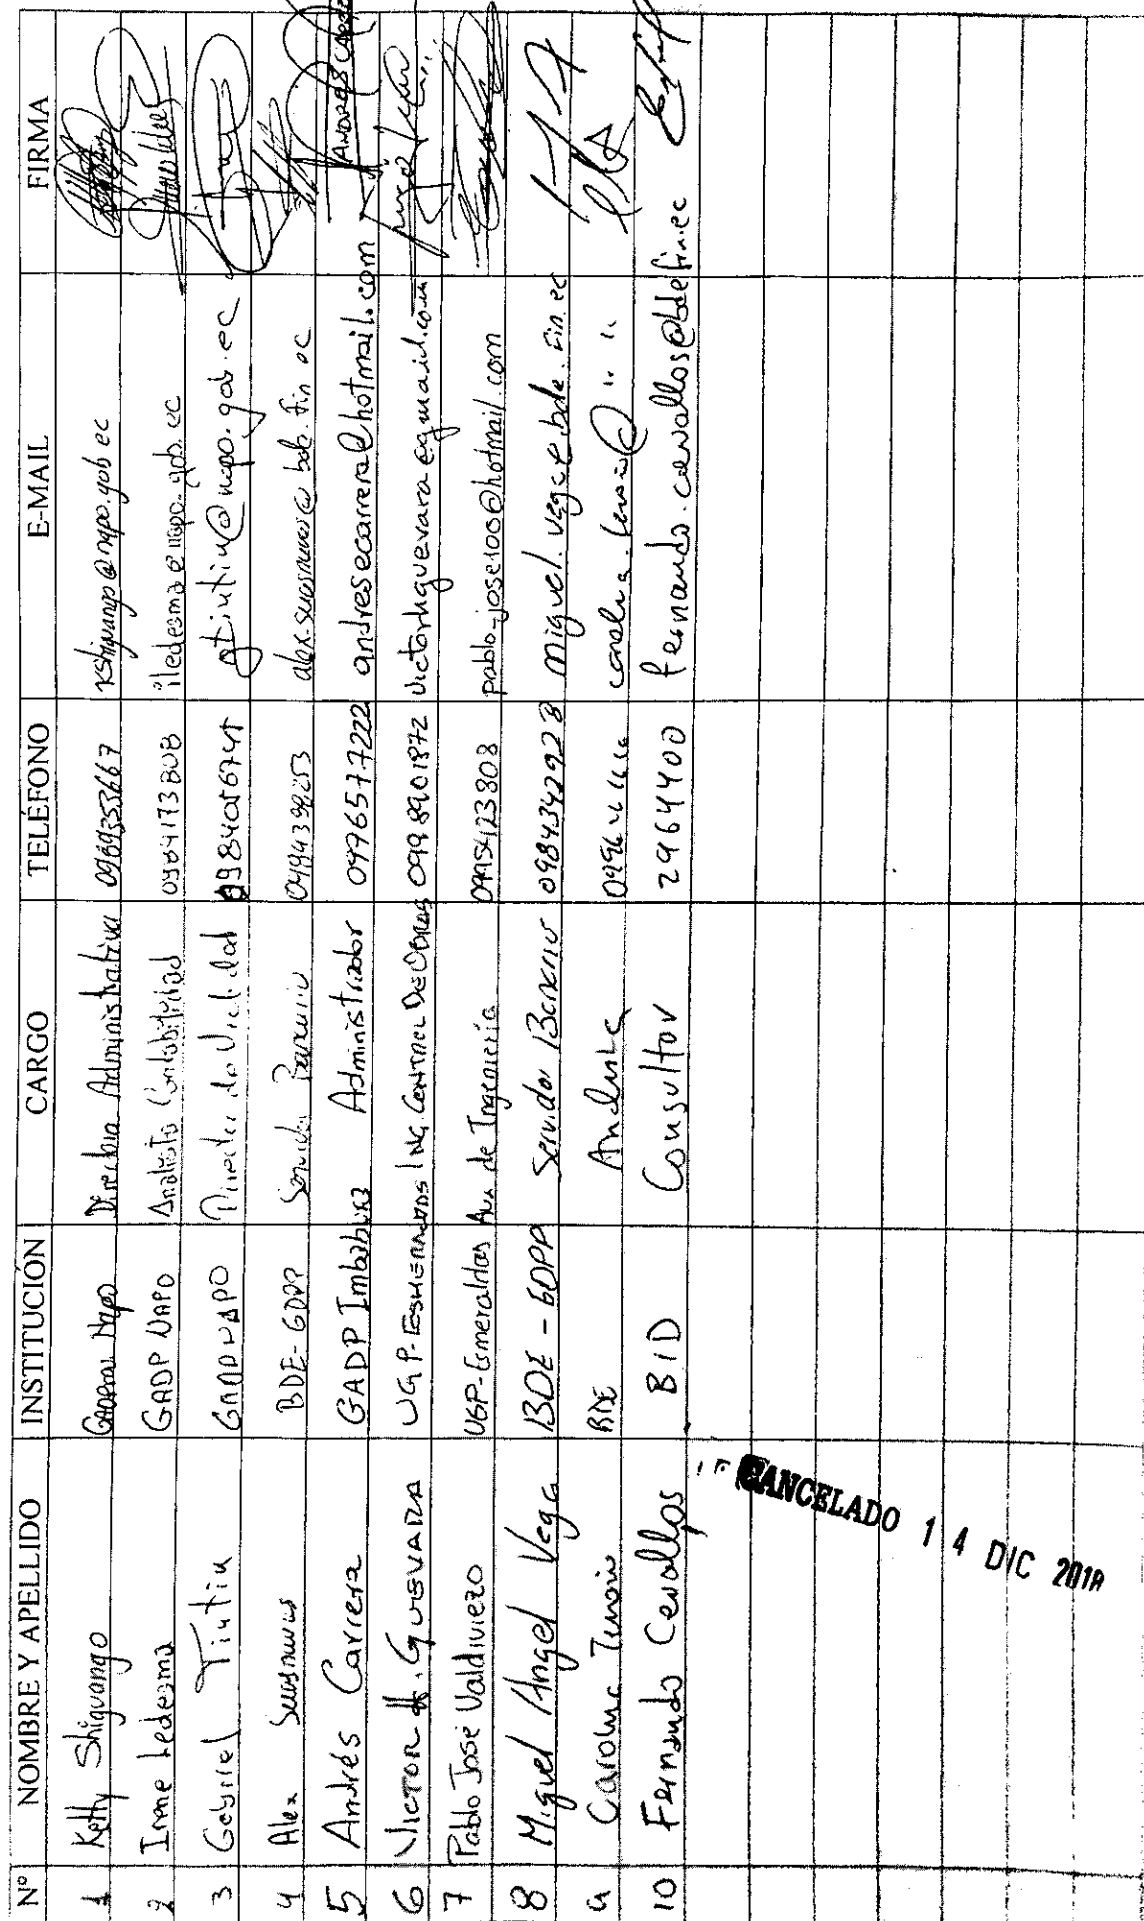 Nº NOMBRE Y APELLIDO INSTITUCIÓN CARGO TELÉFONO E-MAIL FIRMA
1 Ketty Shiguango Napo Directora Administrativa 0969353667 kshiguango@napo.gob ec
2 Irene Ledesma GADP NAPO Analista Contabilidad iledesma@napo.gob.ec
3 Gabriel Tiutiu GADP NAPO Director de Vialidad gtiutiu@napo.gob.ec
4 Alex BDE-GDPP Servidor Bancario
5 Andrés Carrera GADP Imbabura Administrador 0976577222 andresecarrera@hotmail.com
6 VICTOR H. GUEVARA UGP-ESMERALDAS ING. CONTROL DE OBRAS 0998901872 victorhguevara@gmail.com
7 Pablo José Valdiviezo UGP-Esmeraldas Aux de Ingeniería 0995423808 pablo-jose100@hotmail.com
8 Miguel Angel Vega BDE - GDPP Servidor Bancario 0984342928 miguel.vega@bde.fin.ec
9 Carolina BDE
10 Fernando Cevallos BID Consultor 2964400 fernando.cevallos@bde.fin.ec
CANCELADO 14 DIC 2018